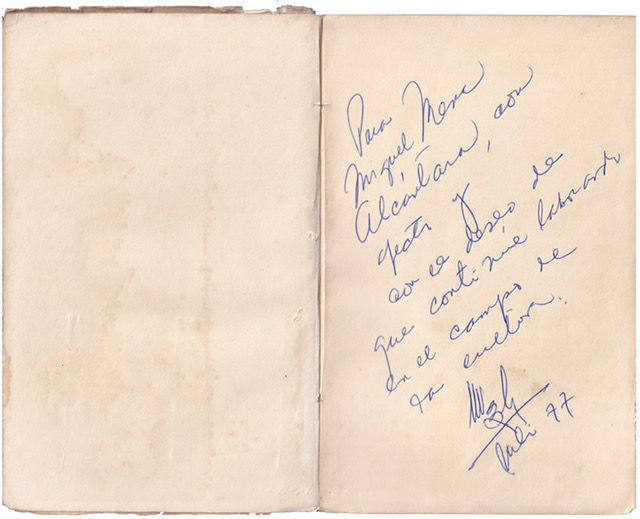 Para
Miguel Mena
Alcántara, con
afecto y
con el deseo de
que continúe laborando
en el campo de
la cultura.
77